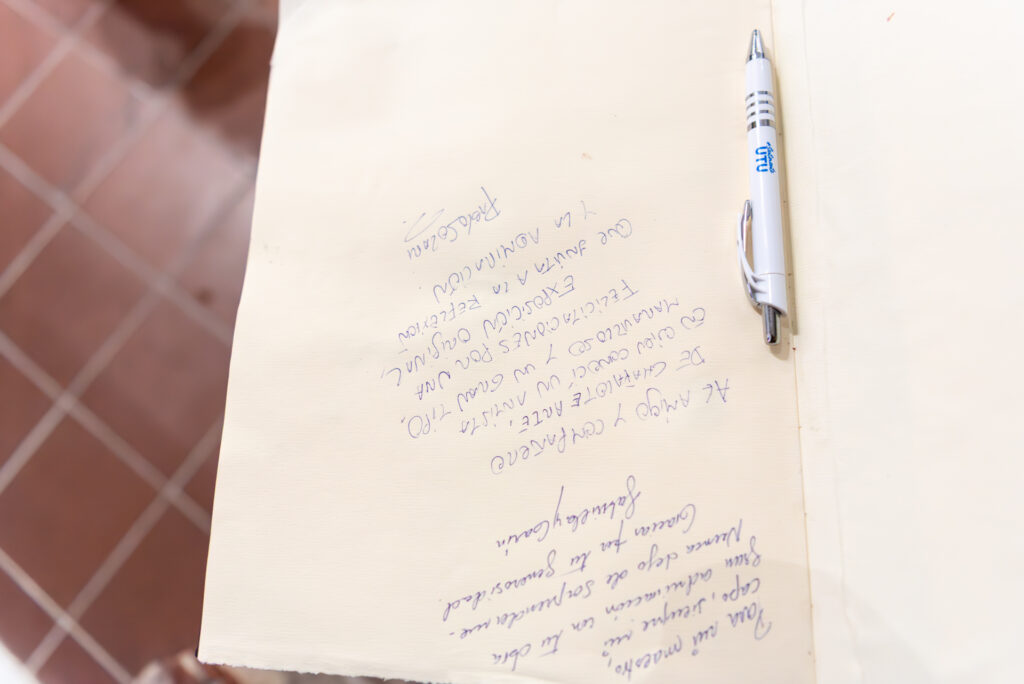 Para mi maestro,
capo, siempre mi
Gran admiración con tu obra
Nunca dejo de sorprenderme.
Gracias por tu generosidad.
AL AMIGO Y COMPAÑERO
DE ARTE,
EN QUIEN CONOCÍ UN ARTISTA
MARAVILLOSO Y UN GRAN TIPO.
FELICITACIONES POR UNA
EXPOSICIÓN ORIGINAL,
QUE INVITA A LA REFLEXIÓN
Y LA ADMIRACIÓN.
UTU